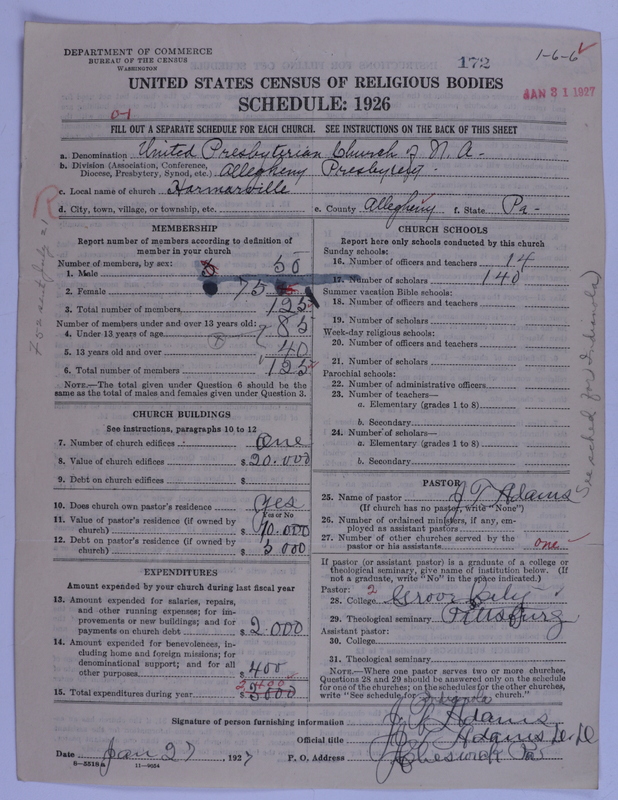 DEPARTMENT OF COMMERCE
BUREAU OF THE CENSUS
WASHINGTON
172
1-6-6
UNITED STATES CENSUS OF RELIGIOUS BODIES
SCHEDULE: 1926
JAN 31 1927
0-1
FILL OUT A SEPARATE SCHEDULE FOR EACH CHURCH. SEE INSTRUCTIONS ON THE BACK OF THIS SHEET
a. Denomination United Presbyterian Church of N. A-
b. Division (Association, Conference, Diocese, Presbytery, Synod, etc.) Allegheny Presbytery.
c. Local name of church Harmarville
d. City, town, village, or township, etc. e. County Allegheny f. State Pa-
R
MEMBERSHIP
Report number of members according to definition of member in your church
Number of members, by sex:
1. Male 50
2. Female 75
3. Total number of members 125
Number of members under and over 13 years old:
4. Under 13 years of age 85
5. 13 years old and over 40
6. Total number of members 125
NOTE.—The total given under Question 6 should be the same as the total of males and females given under Question 3.
CHURCH BUILDINGS
See instructions, paragraphs 10 to 12
7. Number of church edifices One
8. Value of church edifices $ 20.000
9. Debt on church edifices $
10. Does church own pastor's residence yes
Yes or No
11. Value of pastor's residence (if owned by church) $ 10.000
12. Debt on pastor's residence (if owned by church) $ 3000
EXPENDITURES
Amount expended by your church during last fiscal year
13. Amount expended for salaries, repairs, and other running expenses; for improvements or new buildings; and for payments on church debt $ 2.000
14. Amount expended for benevolences, including home and foreign missions; for denominational support; and for all other purposes $ 400
2,400
15. Total expenditures during year $
CHURCH SCHOOLS
Report here only schools conducted by this church
Sunday schools:
16. Number of officers and teachers 14
17. Number of scholars 140
Summer vacation Bible schools:
18. Number of officers and teachers
19. Number of scholars
Week-day religious schools:
20. Number of officers and teachers
21. Number of scholars
Parochial schools:
22. Number of administrative officers
23. Number of teachers—
a. Elementary (grades 1 to 8)
b. Secondary
24. Number of scholars—
a. Elementary (grades 1 to 8)
b. Secondary
See sched for Indianola
PASTOR
25. Name of pastor J T Adams
(If church has no pastor, write "None")
26. Number of ordained ministers, if any, employed as assistant pastors
27. Number of other churches served by the pastor or his assistants one
If pastor (or assistant pastor) is a graduate of a college or theological seminary, give name of institution below. (If not a graduate, write "No" in the space indicated.)
Pastor: 2
28. College Grove City
29. Theological seminary Pittsburg
Assistant pastor:
30. College
31. Theological seminary
NOTE.—Where one pastor serves two or more churches, Questions 28 and 29 should be answered only on the schedule for one of the churches; on the schedules for the other churches, write "See schedule for Indianola church."
Signature of person furnishing information J T Adams
Official title J T Adams D.D
Date Jan 27 1927 P. O. Address Cheswick Pa
8-5518a 11-9024